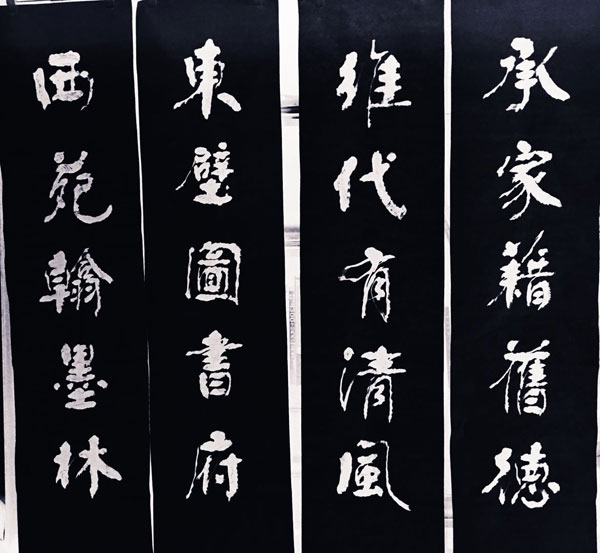 承家籍舊德
維代有清風
東壁圖書府
西苑翰墨林